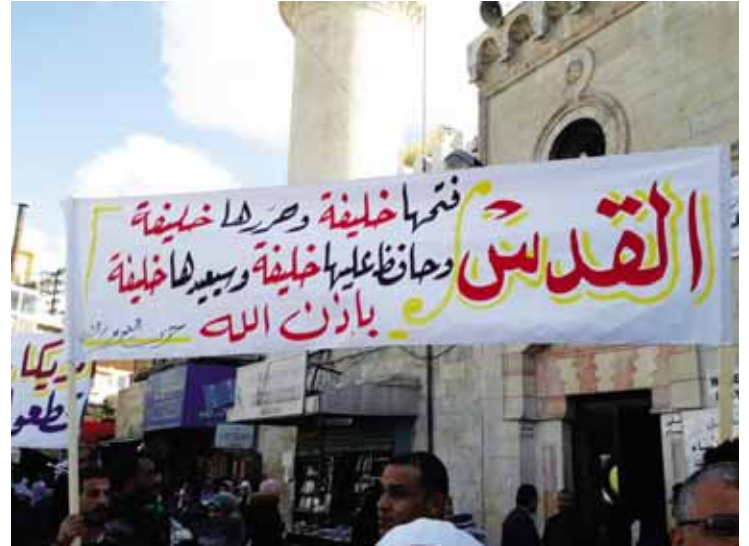 القدس
فتحها خليفة وحررها خليفة
وحافظ عليها خليفة وسيعيدها خليفة
باذن الله